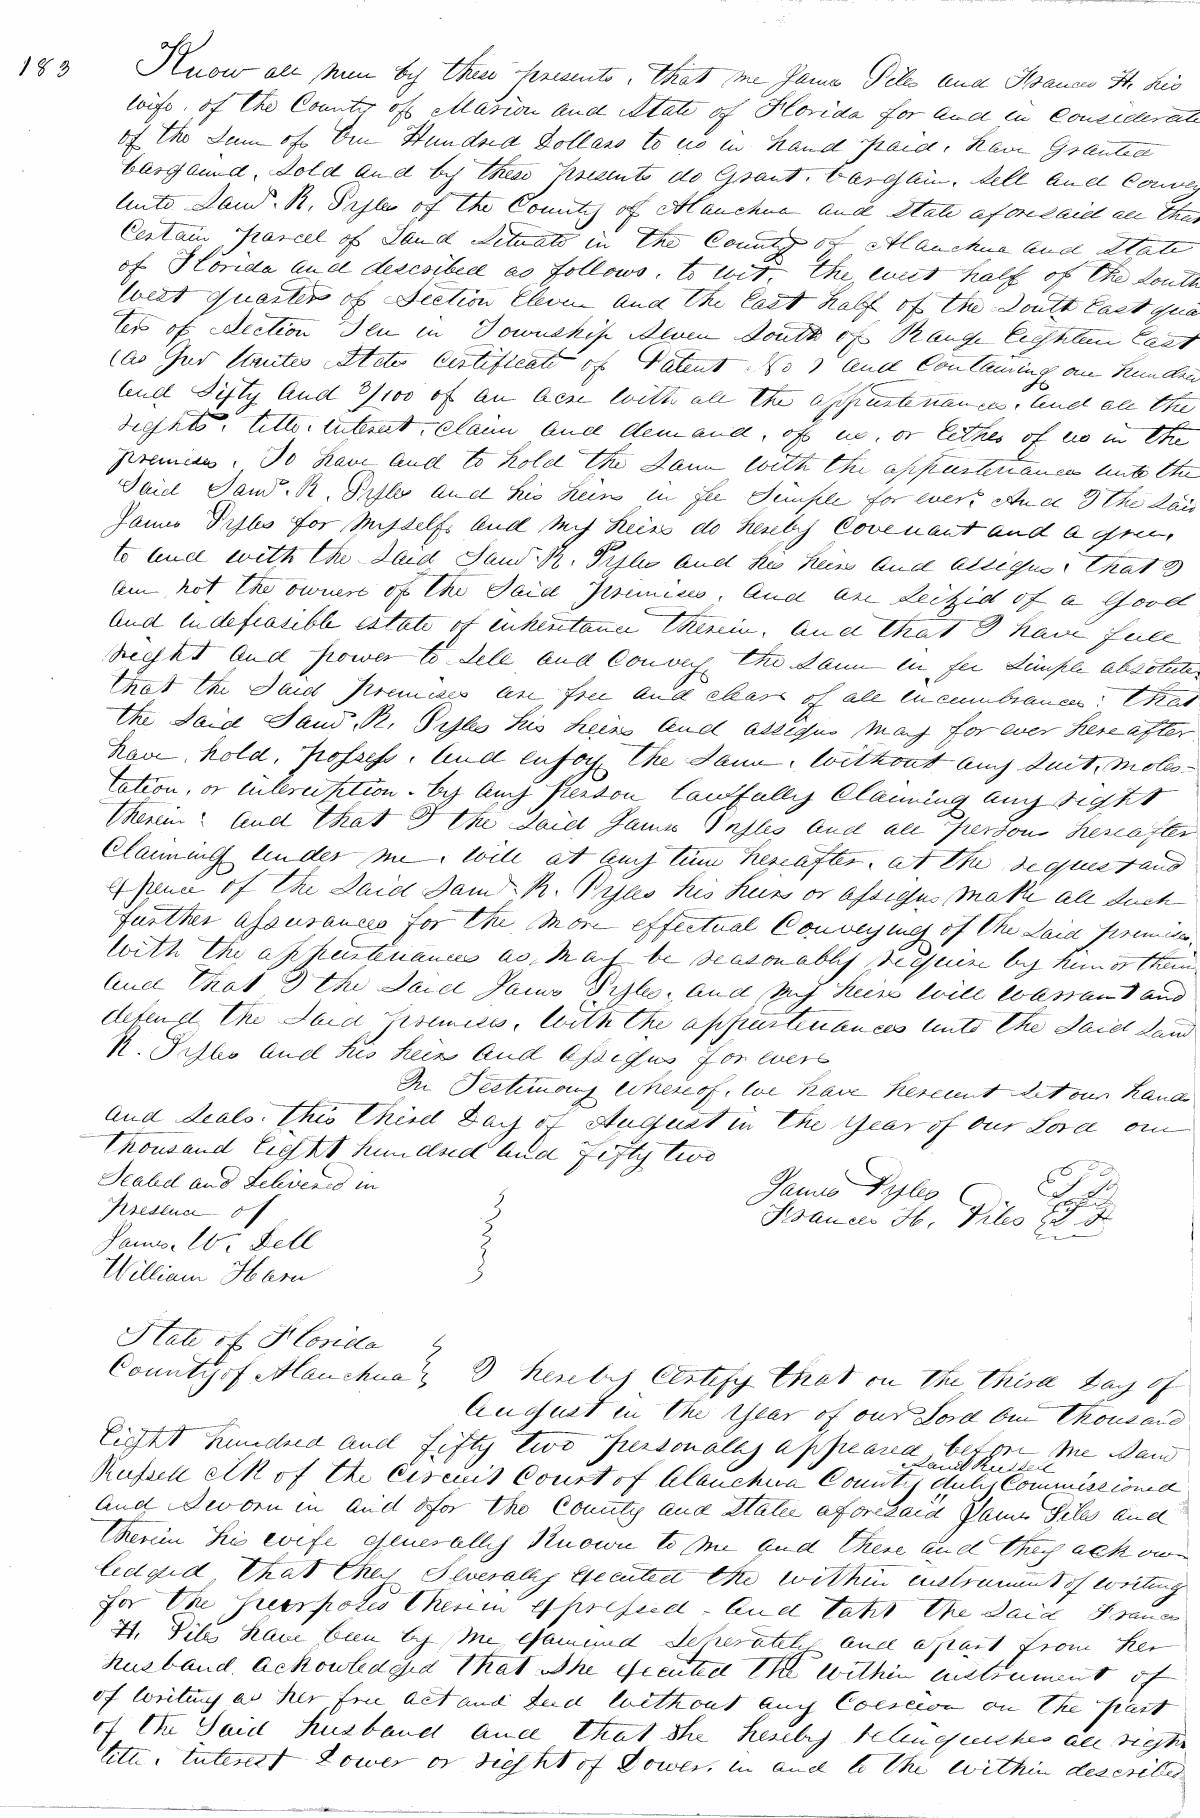 183
Know all men by these presents, that we James Piles and Frances H. his
wife, of the County of Marion and State of Florida for and in considerate
of the Sum of One Hundred Dollars to us in hand paid, have Granted
bargaind, Sold and by these presents do Grant, bargain, Sell and Convey
unto Saml. R. Pyles of the County of Alauchua and State aforesaid all that
Certain parcel of Land Situate in the County of Alauchua and State
of Florida and described as follows, to wit, the west half of the South
West quarter of Section Eleven and the East half of the South East quar
ter of Section Ten in Township Seven South of Range Eighteen East
(as per Unites States Certificate of Patent No ) and Containing one hundred
and Sifty and 3/100 of an acre with all the appurtenances, and all the
rights, title, interest, claim and demand, of us, or Either of us in the
premises, To have and to hold the Same with the appurtenances unto the
Said Saml. R. Pyles and his heirs in fee Simple for ever. And I the Said
James Pyles for myself, and my heirs do hereby Covenant and agree,
to and with the Said Saml. R. Pyles and his heirs and assigns, that I
am not the owners of the Said premises, and are Seizid of a Good
and indefeasible estate of inheritance therein, and that I have full
right and power to Sell and Convey the Same in fee Simple absolute
that the Said premises are free and clear of all incumbrances: that
the Said Saml. R. Pyles his heirs and assigns may for ever hereafter
have, hold, possess, and enjoy the Same, without any Suit, moles-
tation, or interuption, by any person lawfully Claiming any right
therein: and that I the Said James Pyles and all persons hereafter
Claiming under me, will at any time hereafter, at the request and
expence of the Said Saml. R. Pyles his heirs or assigns, make all Such
further assurances for the more effectual Conveying of the Said premises,
with the appurtenances as may be reasonably require by him or them
and that I the Said James Pyles, and my heirs will warrant and
defend the Said premises, with the appurtenances unto the Said Saml
R. Pyles and his heirs and assigns for ever
In Testimony whereof, we have hereunt Set our hands
and Seals, this third Day of August in the Year of our Lord one
thousand Eight hundred and fifty two
Sealed and Delivered in
presence of
James. W. Dell
William Harn
James Pyles
Frances H. Piles
State of Florida
County of Alauchua
I hereby Certify that on the third Day of
August in the Year of our Lord one thousand
Eight hundred and fifty two personally appeared before me Saml
Saml Russell
Russell Clk of the Circuit Court of Alauchua County duly Commissioned
and Sworn in and for the County and State aforesaid James Piles and
therein his wife generally Known to me and there and they acknow
ledged, that they Severally executed the within instrument of writing
for the purposes therein expressed, and taht the Said Frances
H. Piles have been by me, examined Seperately and apart from her
husband acknowledged that She executed the within instrument of
of writing as her free act and Deed without any Coercion on the part
of the Said husband and that She hereby relinquishes all right
title, interest Dower or right of Dower, in and to the within described